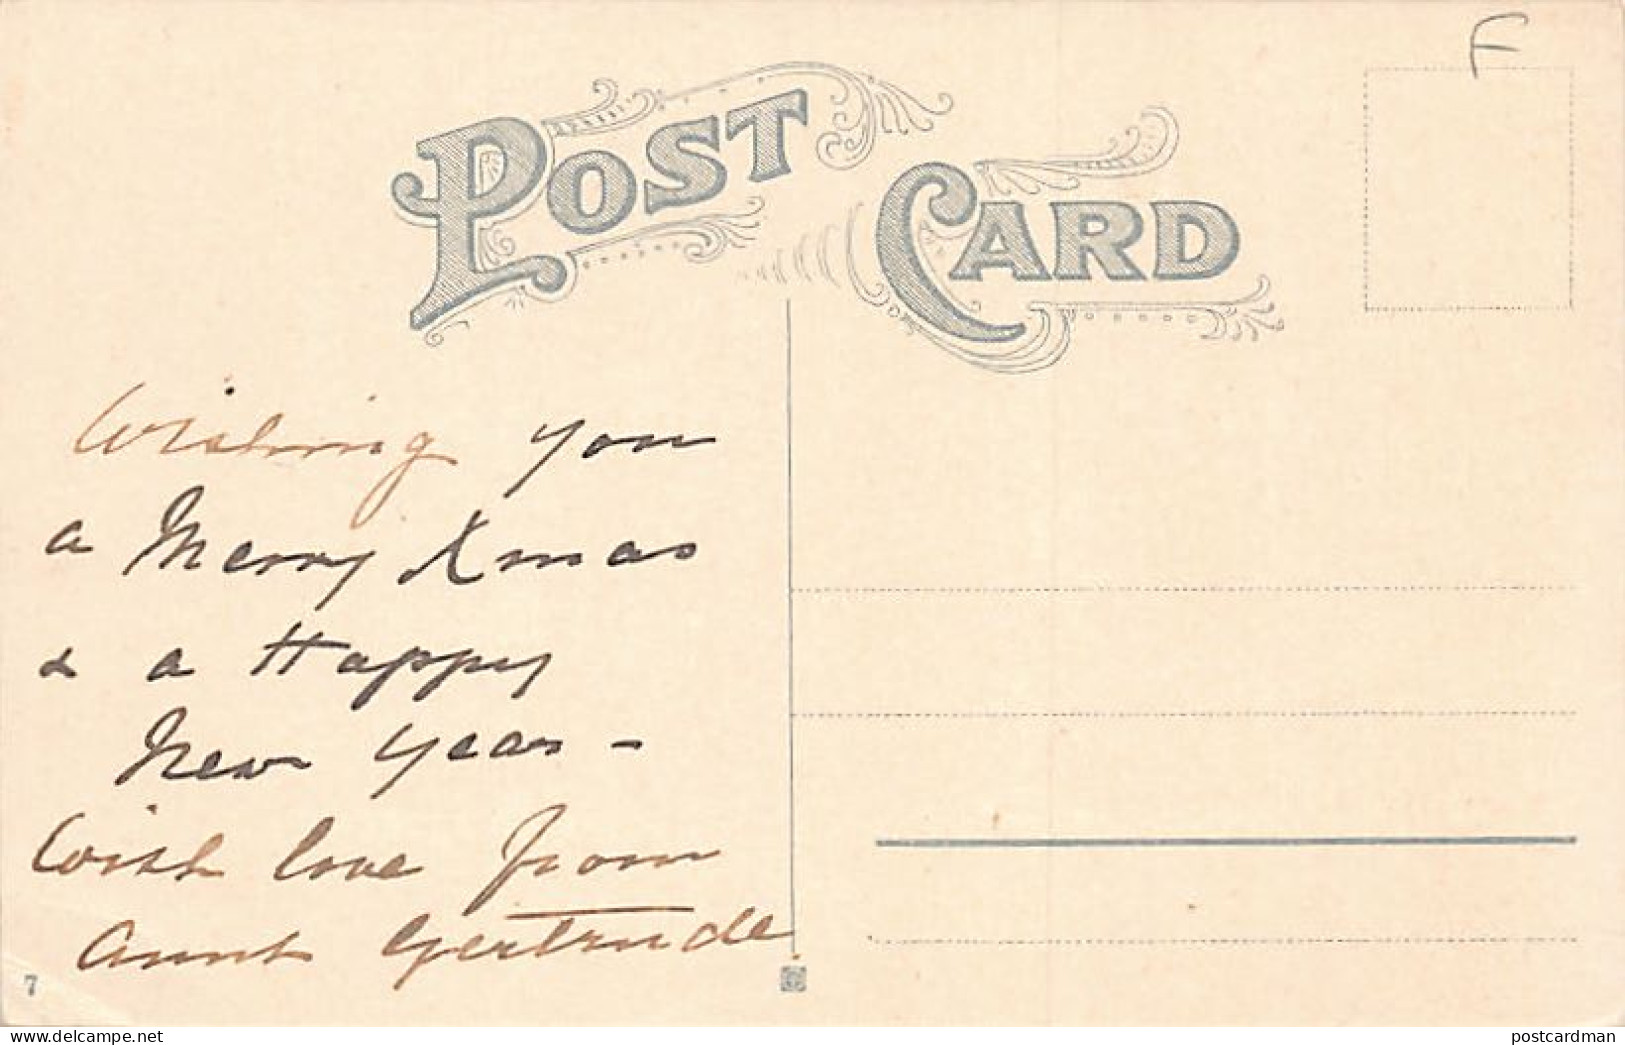 F
POST CARD
Wishing you
a Merry Xmas
& a Happy
New Year –
With love from
Aunt Gertrude
7
www.delcampe.net
postcardman